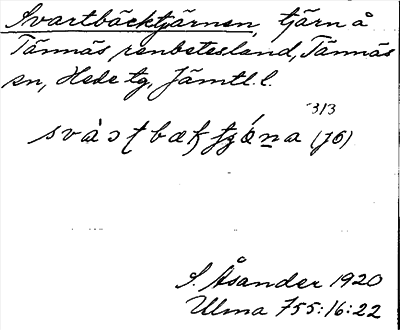 Svartbäcktjärnen, tjärn å
Tännäs renbetesland, Tännäs
sn, Hede tg, Jämtl. l.
313
(76)
S. Åsander 1920
Ulma 755:16:22